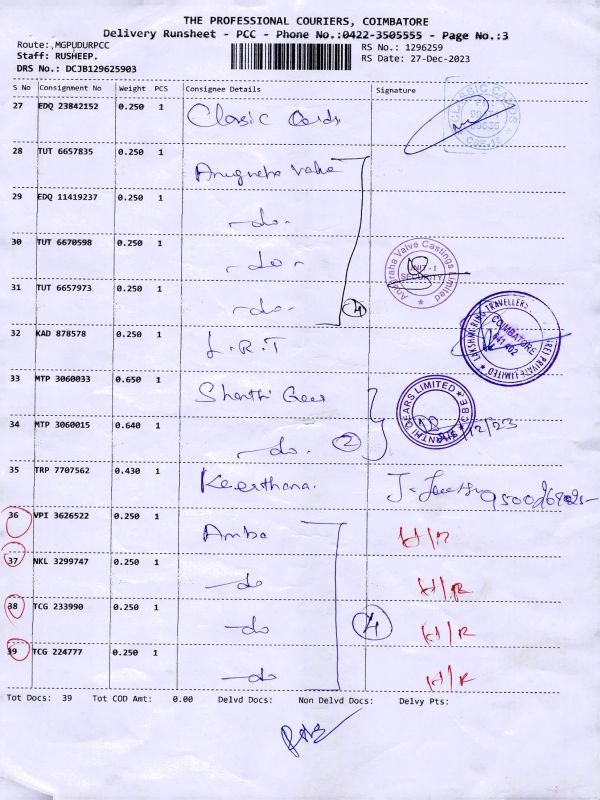 THE PROFESSIONAL COURIERS, COIMBATORE
Delivery Runsheet - PCC - Phone No.:0422-3505555 - Page No.:3
Route: MGPUDURPCC RS No.: 1296259
Staff: RUSHEEP. RS Date: 27-Dec-2023
DRS No.: DCJB129625903
S No Consignment No Weight PCS Consignee Details Signature
27 EDQ 23842152 0.250 1 Classic Cards
CLASSIC CARDS
28 TUT 6657835 0.250 1 Anugraha Valve
29 EDQ 11419237 0.250 1 -do-
30 TUT 6670598 0.250 1 -do-
Anugraha Valve Castings Limited
UNIT-I
SECURITY
31 TUT 6657973 0.250 1 -do- 4
32 KAD 878578 0.250 1 L.R.T
COIMBATORE
641 402
33 MTP 3060033 0.650 1 Shanthi Gears
SHANTHI GEARS LIMITED
34 MTP 3060015 0.640 1 -do. 2
/12/23
35 TRP 7707562 0.430 1 Keerthana.
36 VPI 3626522 0.250 1 Amba H/R
37 NKL 3299747 0.250 1 -do H/R
38 TCG 233990 0.250 1 -do 4 H/R
39 TCG 224777 0.250 1 -do H/R
Tot Docs: 39 Tot COD Amt: 0.00 Delvd Docs: Non Delvd Docs: Delvy Pts: